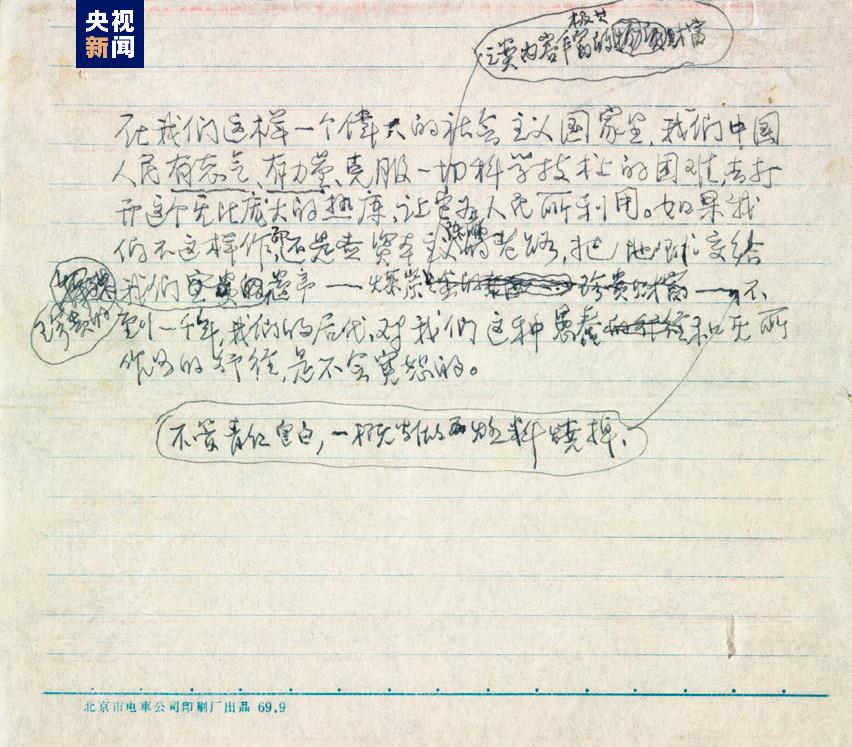 央视
新闻
极其
之类内容丰富的财富
在我们这样一个伟大的社会主义国家里,我们中国
人民有志气、有力量、克服一切科学技术上的困难,去打
开这个无比庞大的热库,让它为人民所利用。如果我
们不这样作,还是走资本主义的老路,把地球交给
我们宝贵的遗产——煤炭 珍贵财富——不
珍贵的
到一千年,我们的后代,对我们这种愚蠢和无所
作为的行径,是不会宽恕的。
不管青红皂白,一概当做燃料烧掉,
北京市电車公司印刷厂出品 69.9